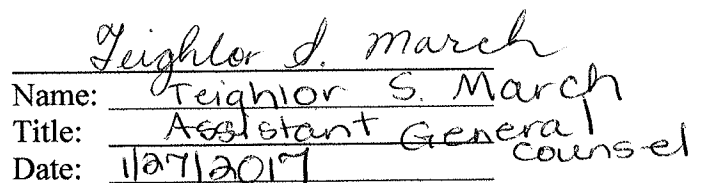 Teighlor S. March
Name: Teighlor S. March
Title: Assistant General counsel
Date: 1/27/2017